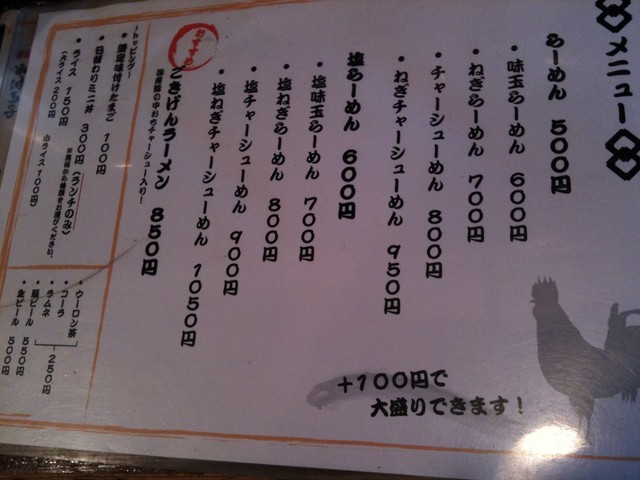 メニュー
らーめん 500円
・味玉らーめん 600円
・ねぎらーめん 700円
・チャーシューめん 800円
・ねぎチャーシューめん 950円
塩らーめん 600円
・塩味玉らーめん 700円
・塩ねぎらーめん 800円
・塩チャーシューめん 900円
・塩ねぎチャーシューめん 1050円
おすすめ
ごきげんラーメン 850円
チャーシュー入り!
+100円で
大盛りできます!
~トッピング~
味付けたまご 100円
・日替わりミニ丼 300円(ランチのみ)
・ライス 150円
(大ライス 200円 小ライス 100円)
・ウーロン茶
・コーラ
・ラムネ
250円
・瓶ビール 550円
・生ビール 500円